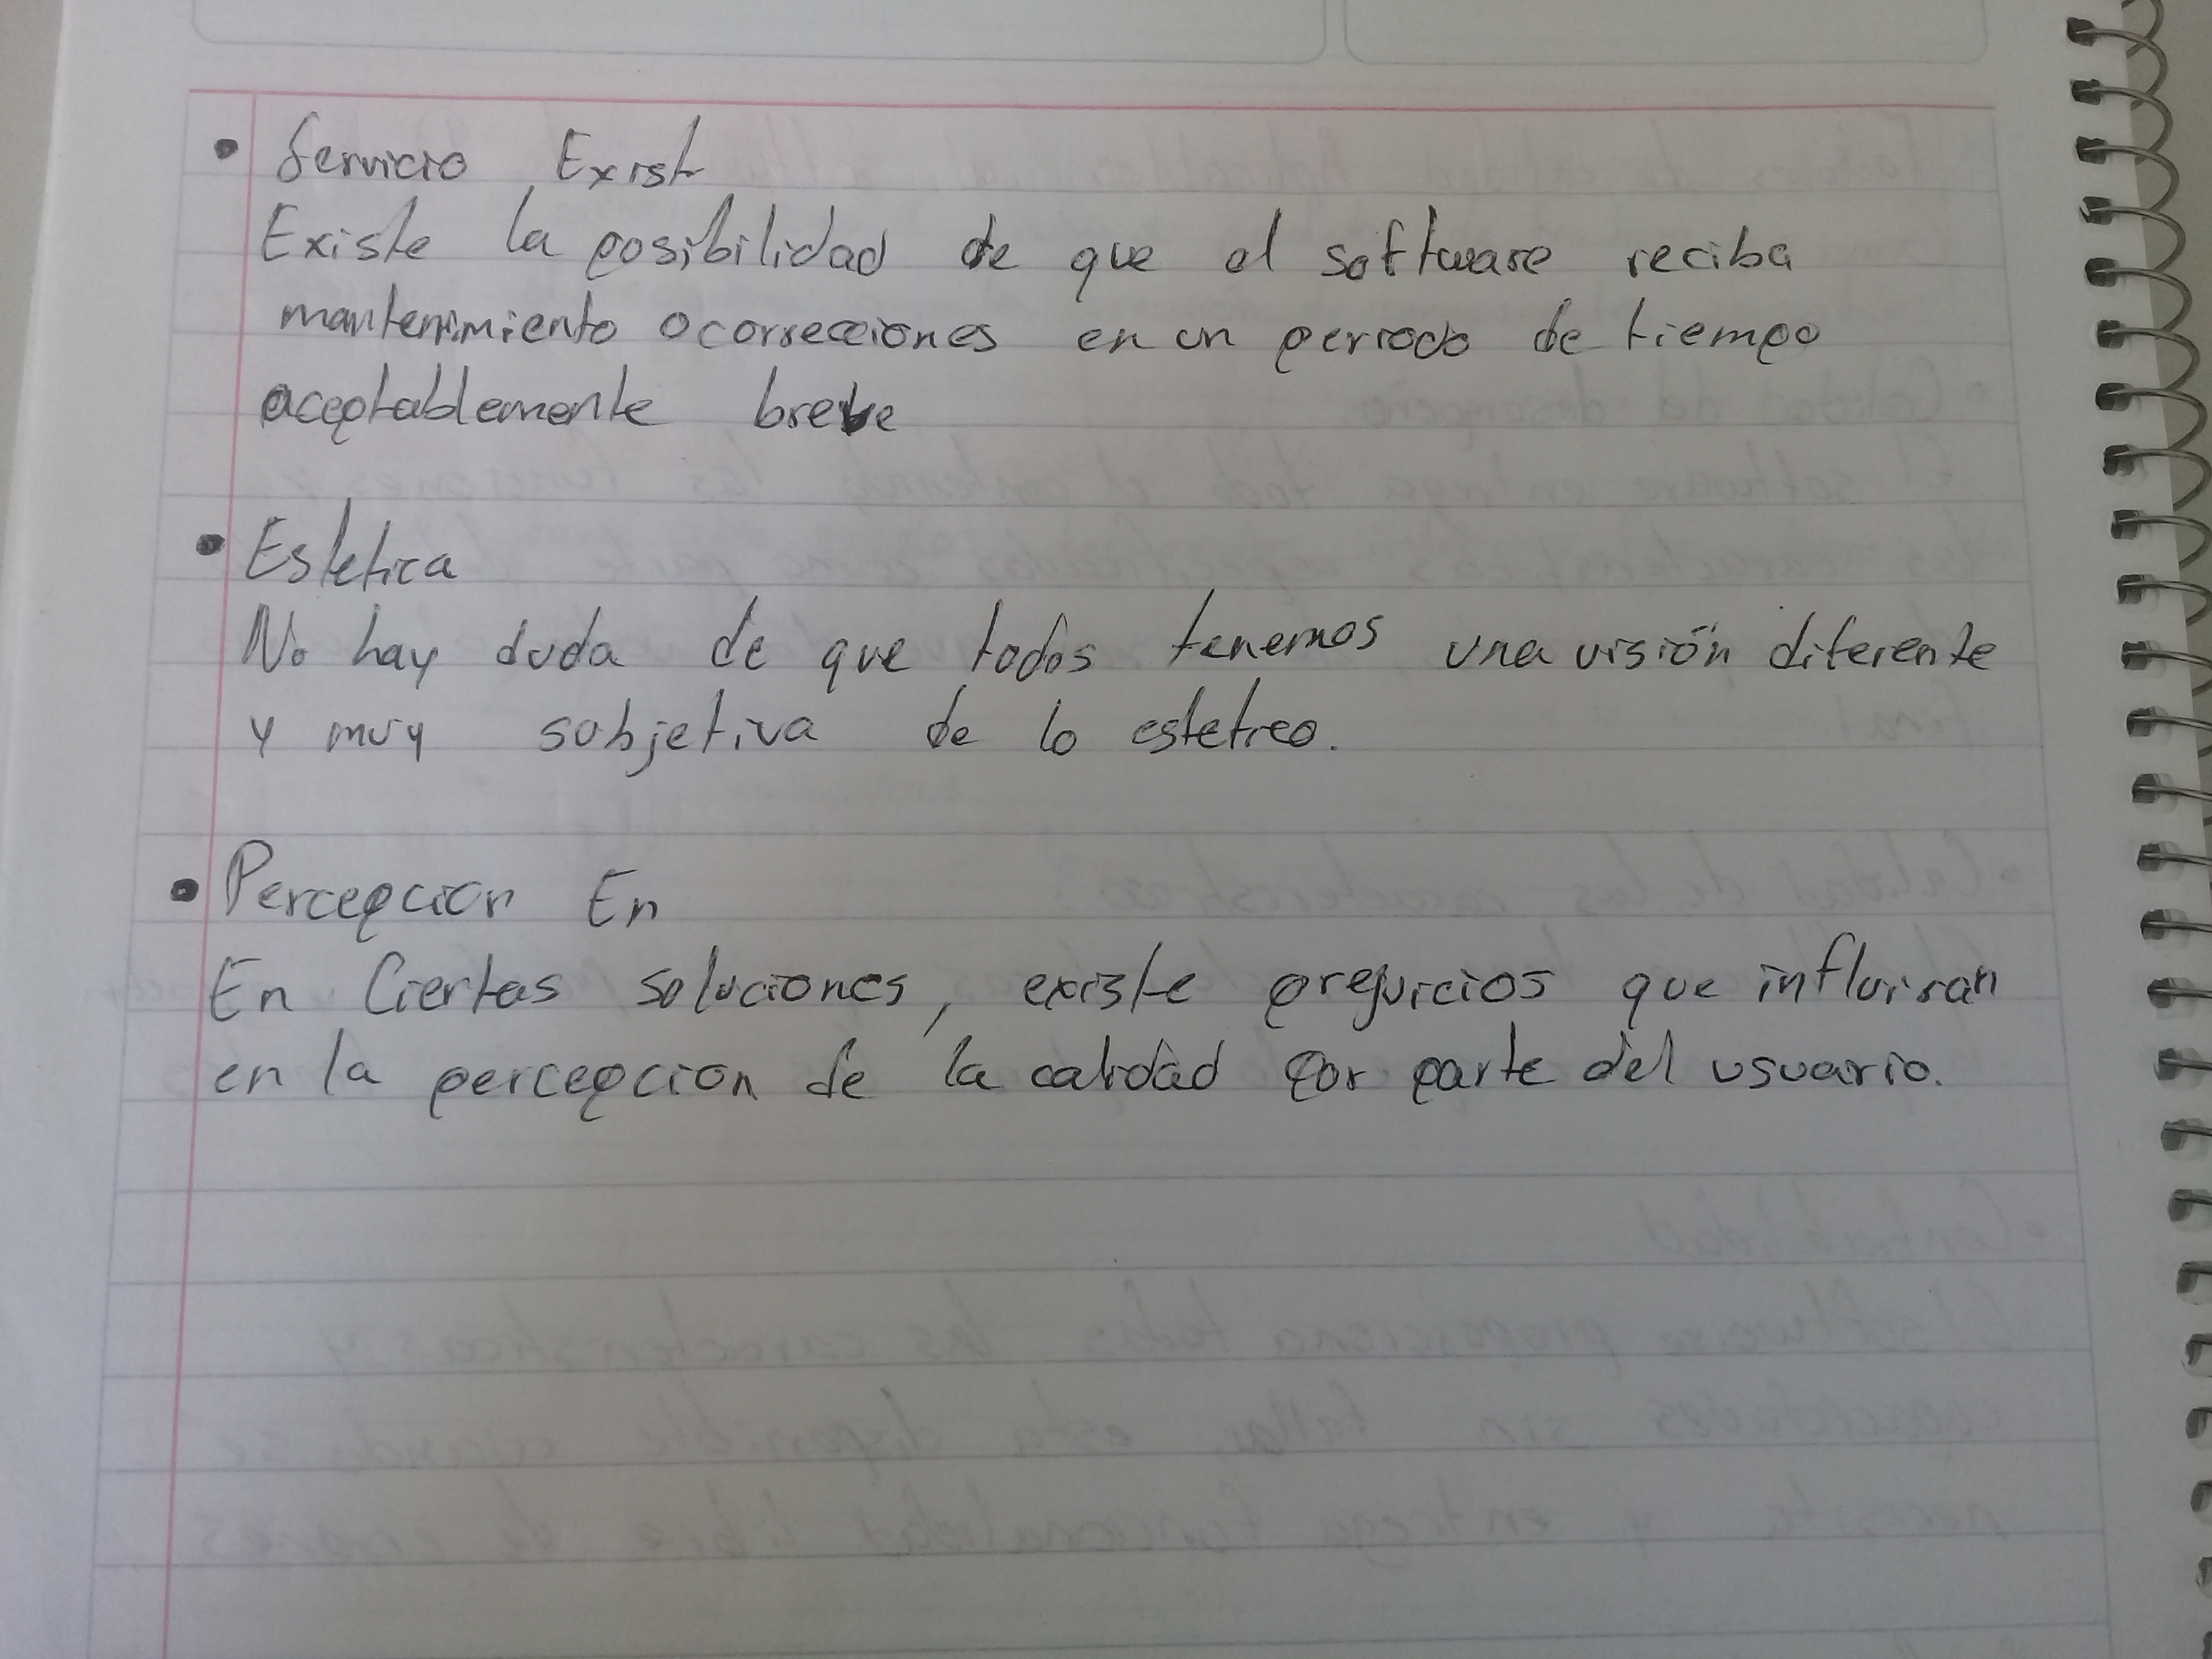 • Servicio Exist
Existe la posibilidad de que el software reciba
mantenimiento o correcciones en un periodo de tiempo
aceptablemente breve
• Estetica
No hay duda de que todos tenemos una visión diferente
y muy subjetiva de lo estetico.
• Percepcion En
En ciertas soluciones, existe prejuicios que influiran
en la percepcion de la calidad por parte del usuario.